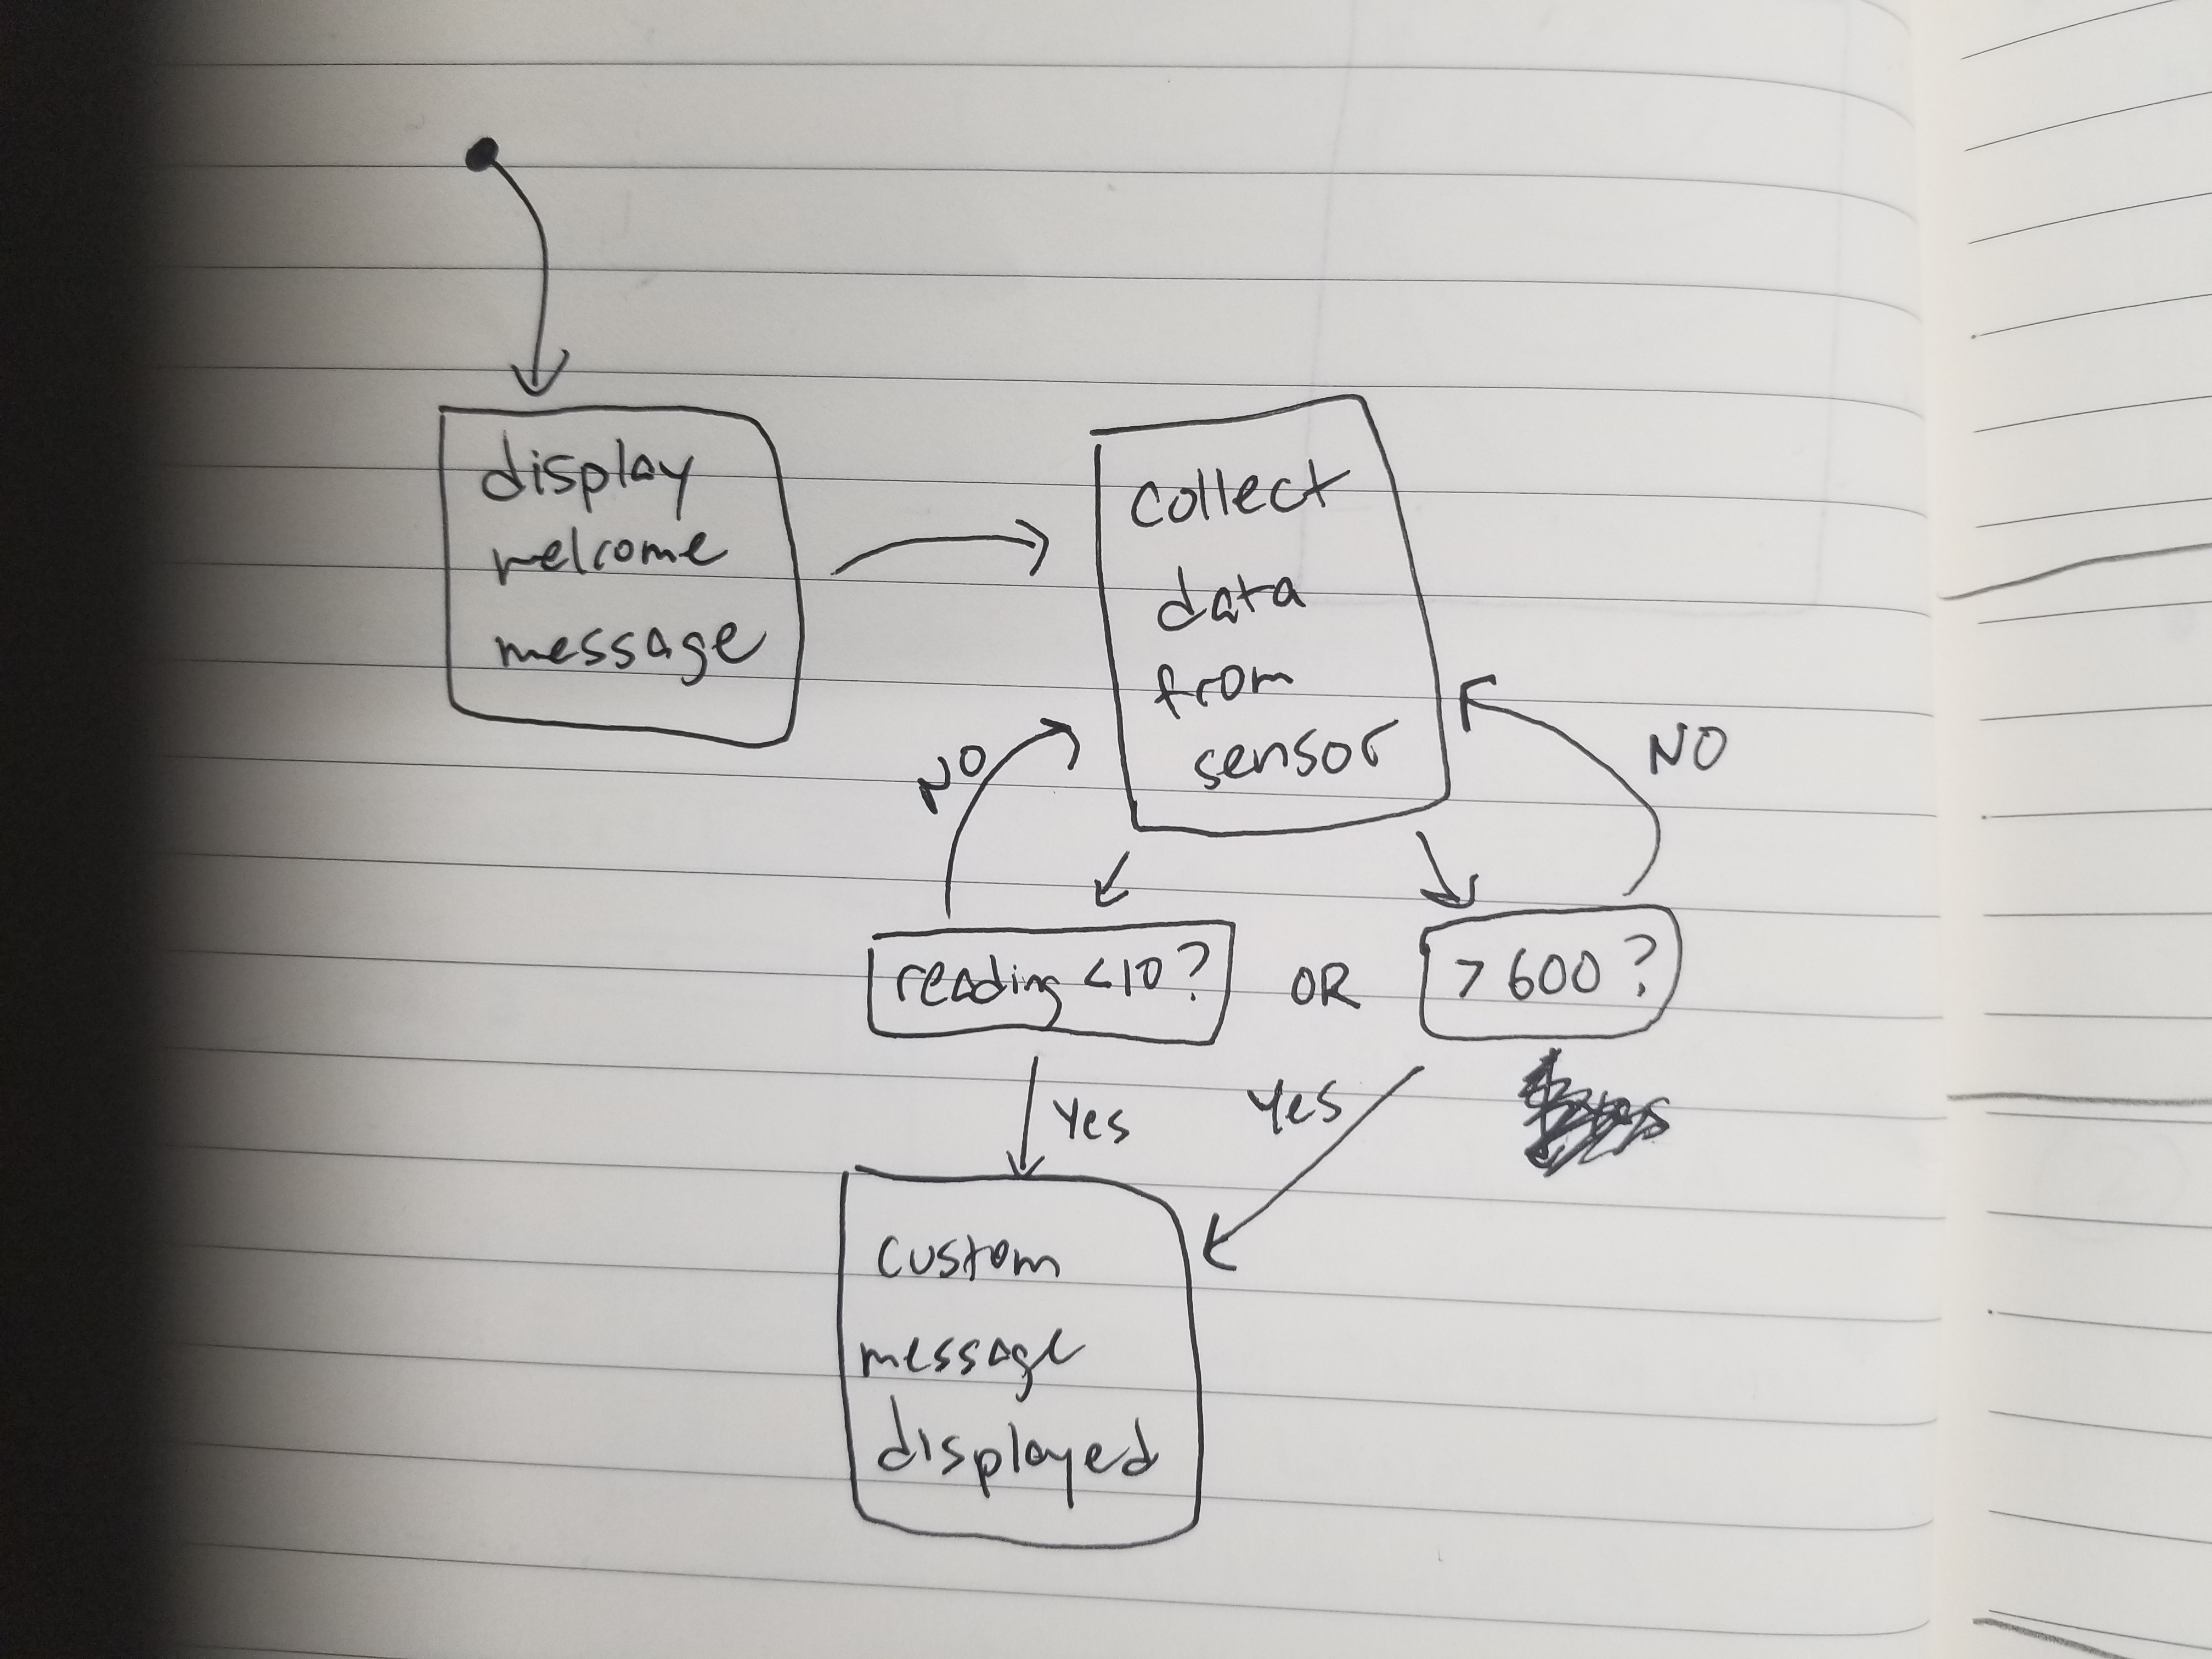 display
welcome
message
collect
data
from
sensor
NO
NO
reading <10?
OR
> 600 ?
Yes
Yes
custom
message
displayed